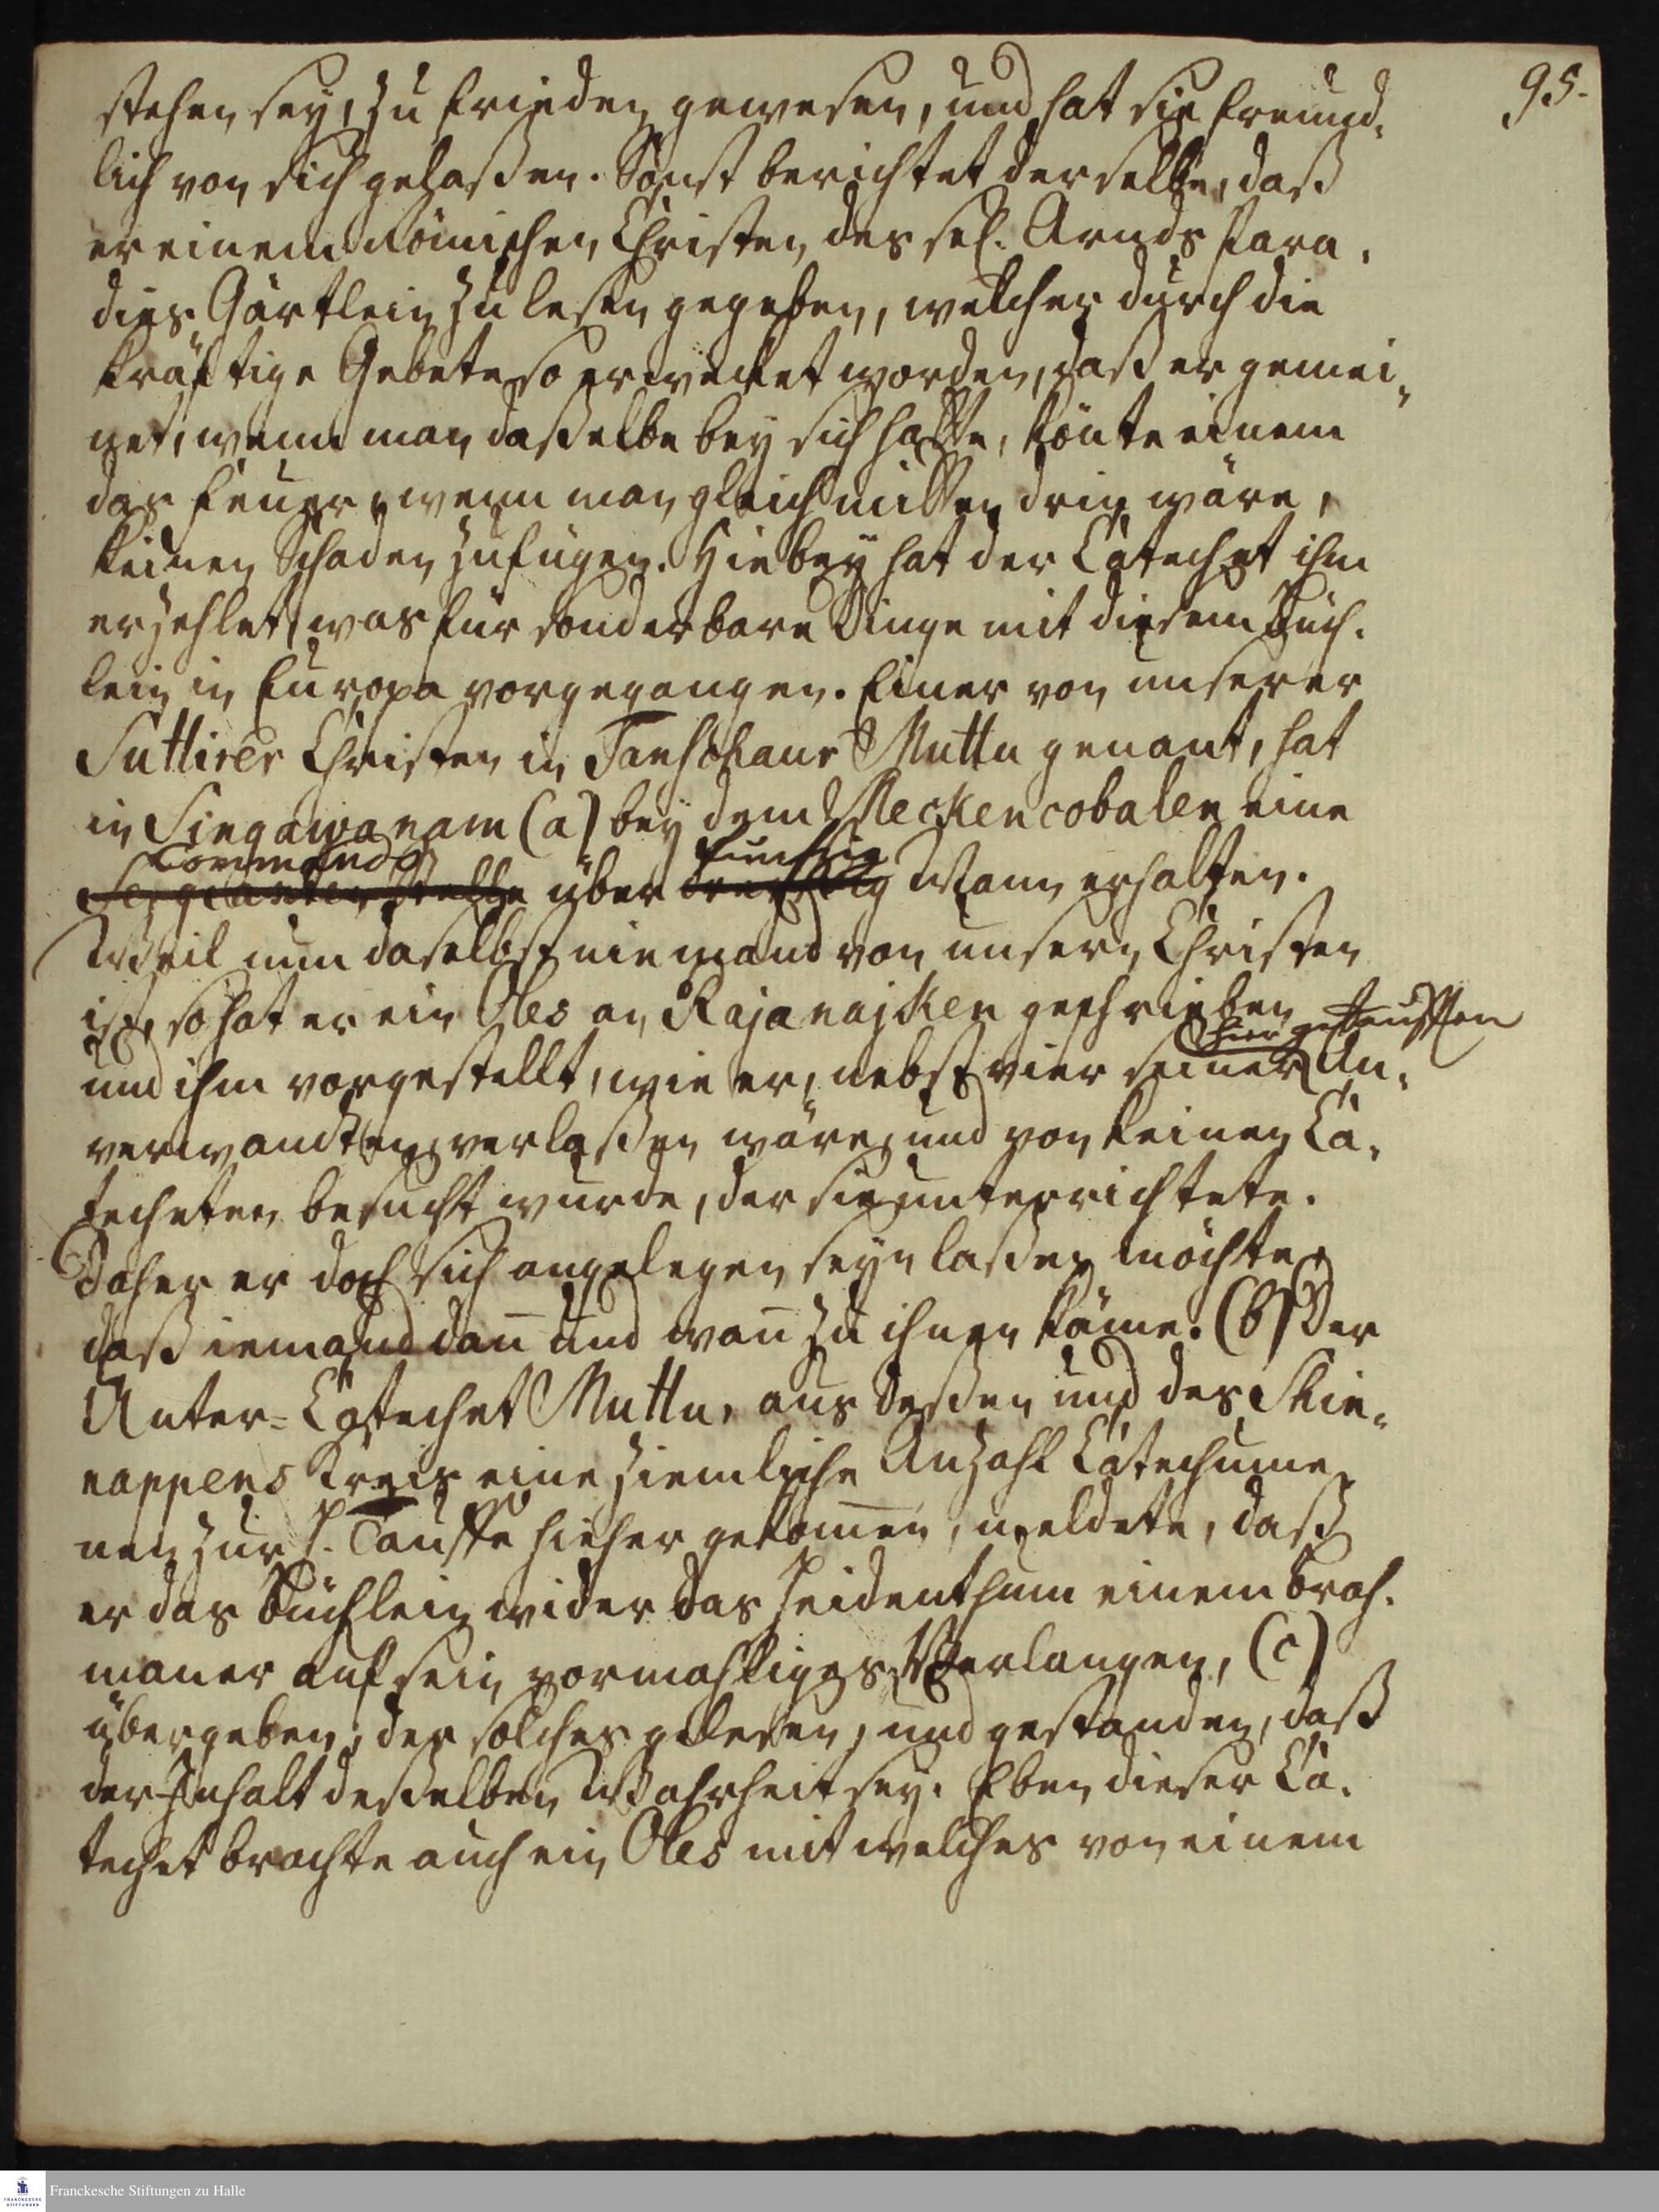 95.
stehen sey, zu frieden gewesen, und hat sie freund,
lich von sich gelaßen. Sonst berichtet derselbe, daß
er einem Römischen Christen des sel. Arnds Para,
dies Gärtlein zu lesen gegeben, welcher durch die
kräftige Gebete so erwecket worden, daß er gemei,
net, wenn man daßelbe bey sich hätte, könte einem
das Feuer, wenn man gleich mitten drin wäre,
keinen Schaden zufügen. Hiebey hat der Catechet ihm
erzehlet, was für sonderbare Dinge mit diesem Büch,
lein in Europa vorgegangen. Einer von unserer
Suttirer Christen in Tanschaur Muttu genant, hat
in Singawanam (a) bey dem Meckencobalen eine
Commando funfzig
Sergeanten Stelle über dreyßig Mann erhalten.
Weil nun daselbst niemand von unsern Christen
ist, so hat er ein Oles an Rajanajken geschrieben
hier getaufften
und ihm vorgestellt, wie er, nebst vier seiner An,
verwandten verlaßen wäre, und von keinen Ca,
techeten besucht würde, der sie unterrichtete.
Daher er doch sich angelegen seyn laßen möchte,
daß iemand dan̄ und wan̄ zu ihnen käme. (b) Der
Unter=Catechet Muttu, aus deßen und des Schie,
nappens Kreis eine ziemliche Anzahl Catechume,
nen zur h. Tauffe hieher gekom̄en, meldete, daß
er das Büchlein wider das Heidenthum einem Brah,
maner auf sein vormahliges Verlangen, (c)
übergeben, der solches gelesen, und gestanden, daß
der Inhalt deßelben Wahrheit sey. Eben dieser Ca,
techet brachte auch ein Oles mit welches von einem
Franckesche Stiftungen zu Halle